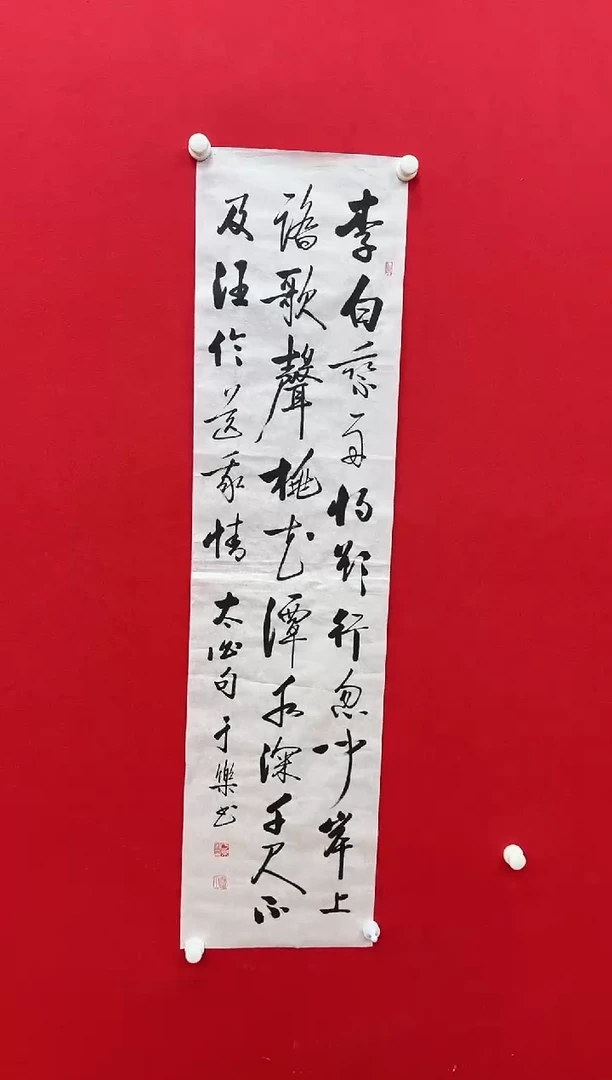 李白乘舟将欲行忽聞岸上
踏歌聲桃花潭水深千尺不
及汪倫送我情 太句 于樂书